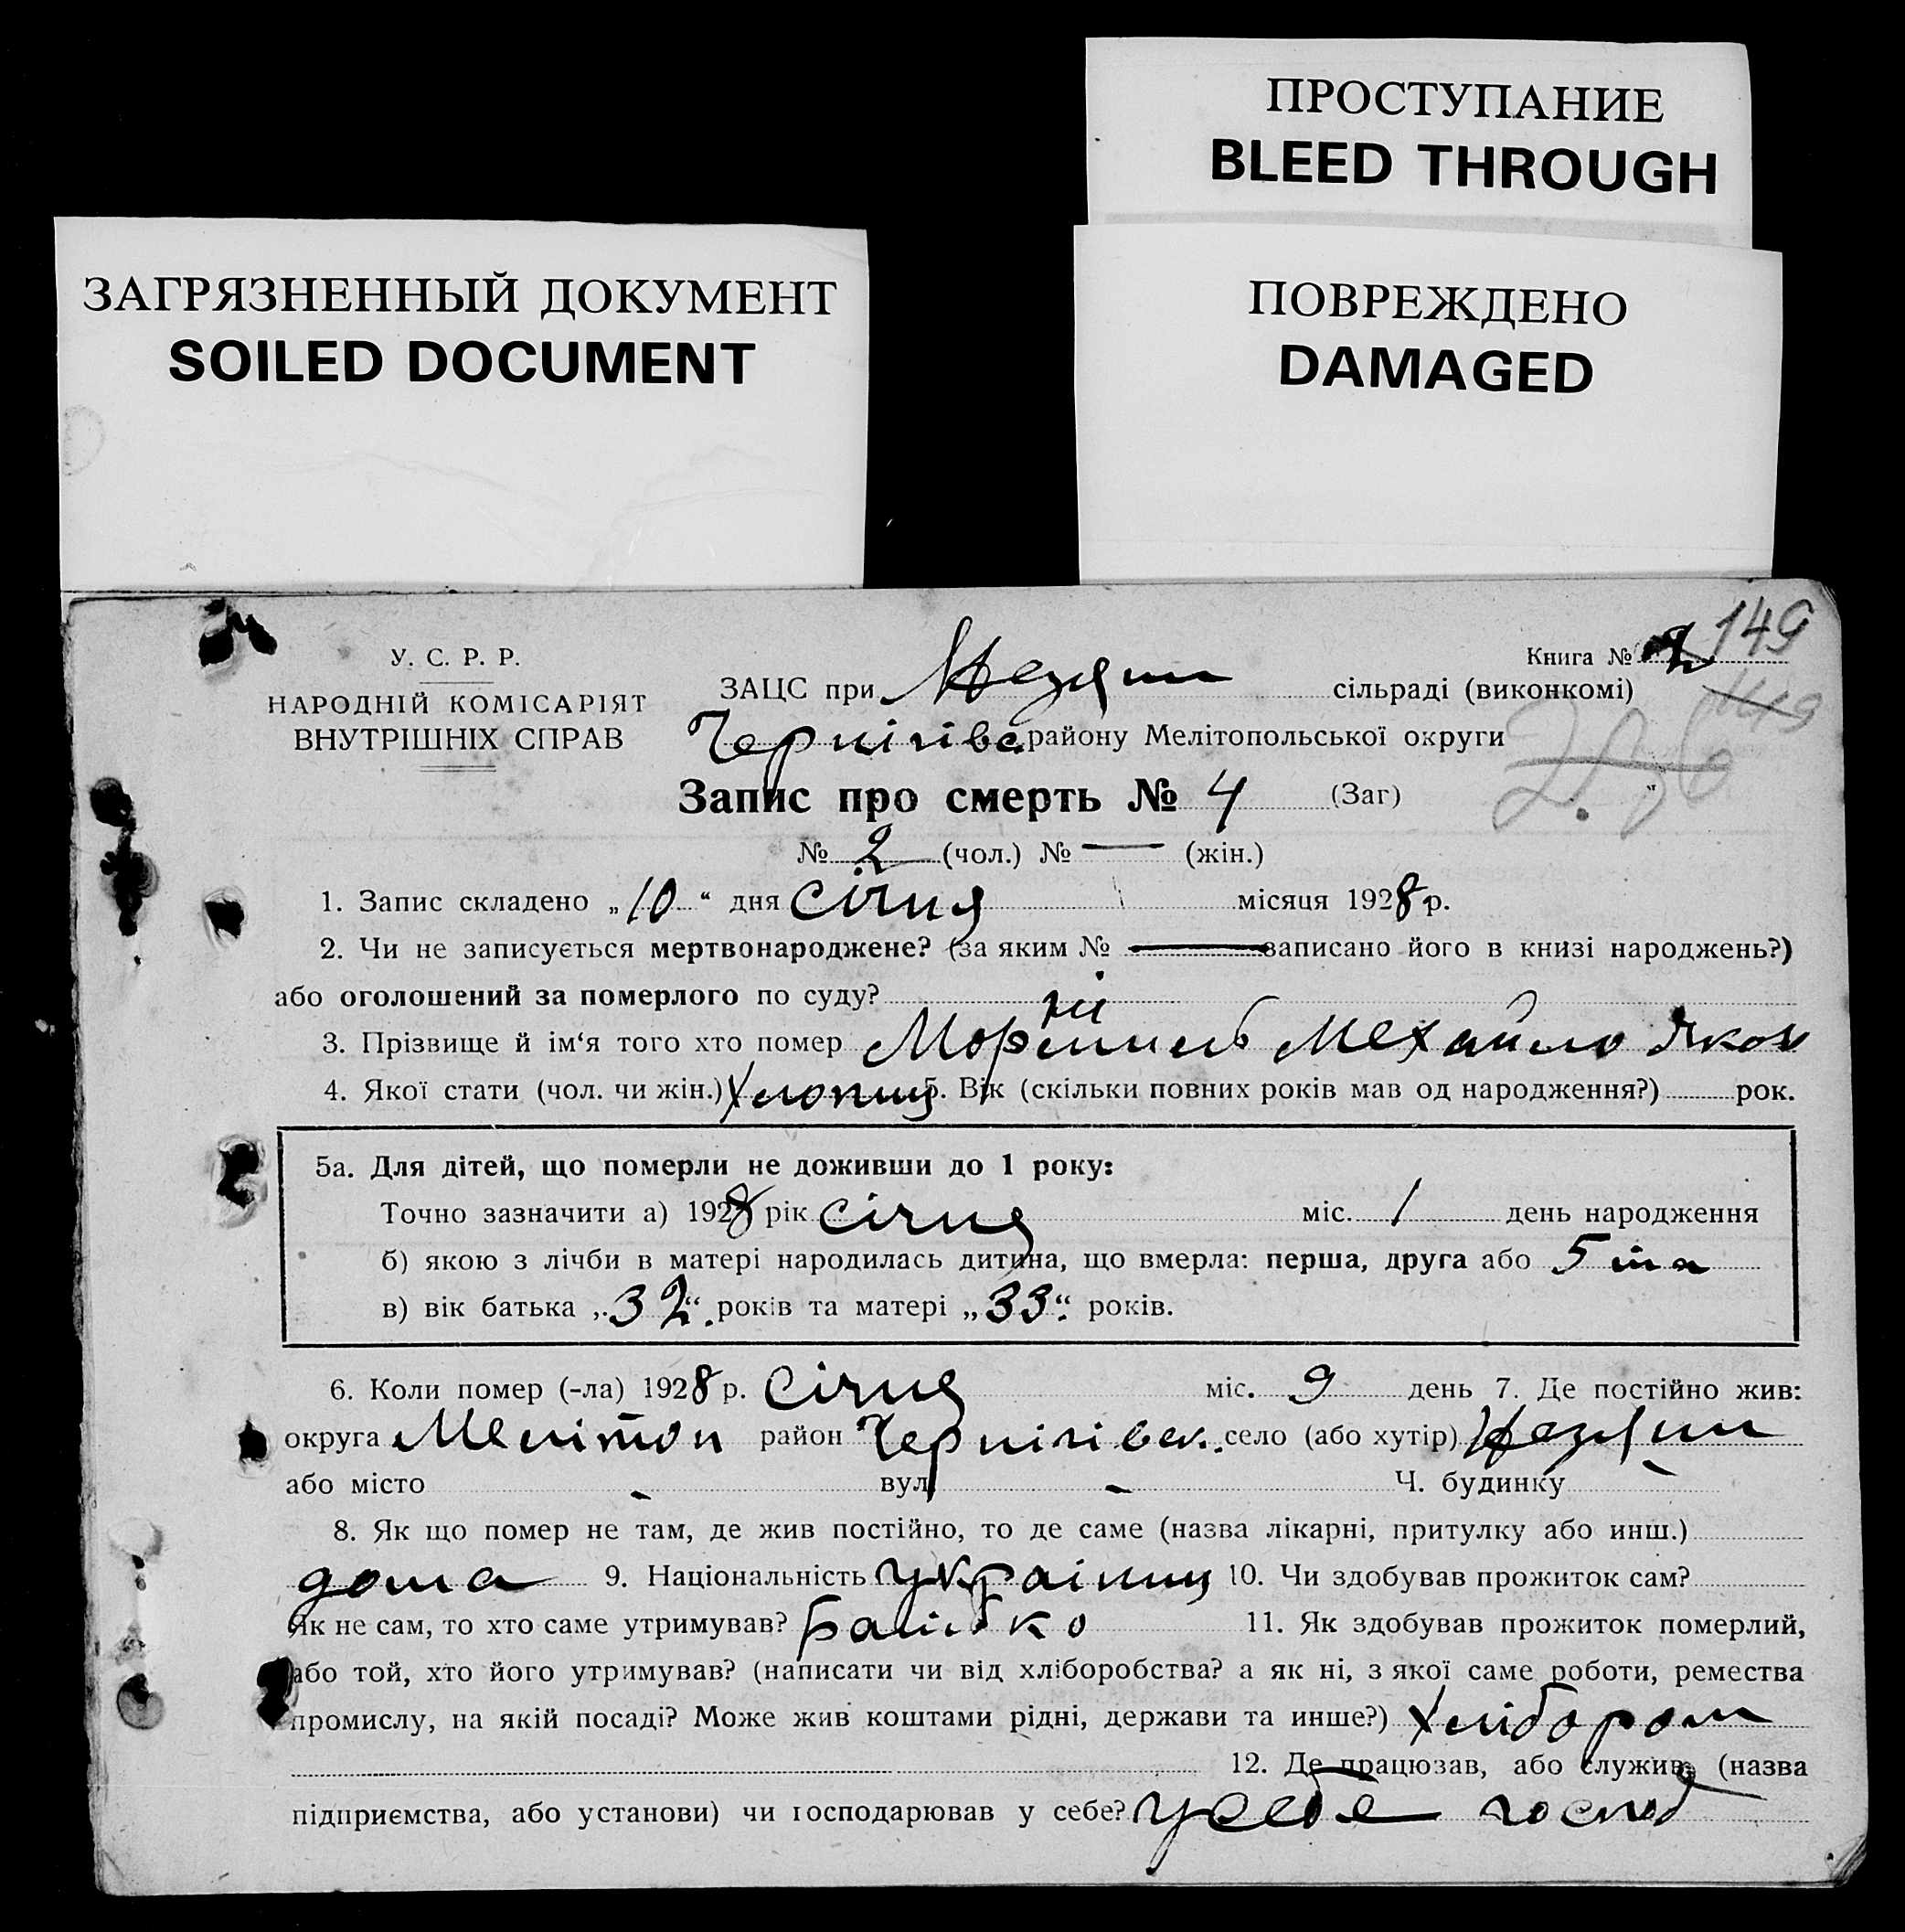 ПРОСТУПАНИЕ
BLEED THROUGH
ЗАГРЯЗНЕННЫЙ ДОКУМЕНТ
SOILED DOCUMENT
ПОВРЕЖДЕНО
DAMAGED
149
У. С. Р. Р.
Книга № 2
НАРОДНІЙ КОМІСАРІЯТ
ВНУТРІШНІХ СПРАВ
ЗАЦС при сільраді (виконкомі)
149
Чернігівс. району Мелітопольської округи
Запис про смерть № 4 (Заг)
№ 2 (чол.) № — (жін.)
1. Запис складено „10“ дня січня місяця 1928 р.
2. Чи не записується мертвонароджене? (за яким № — записано його в книзі народжень?)
або оголошений за померлого по суду? ні
3. Прізвище й ім‘я того хто помер Мехайло Яков
4. Якої стати (чол. чи жін.) Хлопиц 5. Вік (скільки повних років мав од народження?) рок.
5а. Для дітей, що померли не доживши до 1 року:
Точно зазначити а) 1928 рік січня міс. 1 день народження
б) якою з лічби в матері народилась дитина, що вмерла: перша, друга або 5 та
в) вік батька „32“ років та матері „33“ років.
6. Коли помер (-ла) 1928 р. січня міс. 9 день 7. Де постійно жив:
округа Мелітоп район Чернігівск. село (або хутір)
або місто - вул. - Ч. будинку -
8. Як що помер не там, де жив постійно, то де саме (назва лікарні, притулку або инш.)
дома 9. Національність україниц 10. Чи здобував прожиток сам?
Як не сам, то хто саме утримував? батько 11. Як здобував прожиток померлий,
або той, хто його утримував? (написати чи від хліборобства? а як ні, з якої саме роботи, ремества
промислу, на якій посаді? Може жив коштами рідні, держави та инше?) Хлібором
12. Де працював, або служив (назва
підприємства, або установи) чи господарював у себе? у себе господ